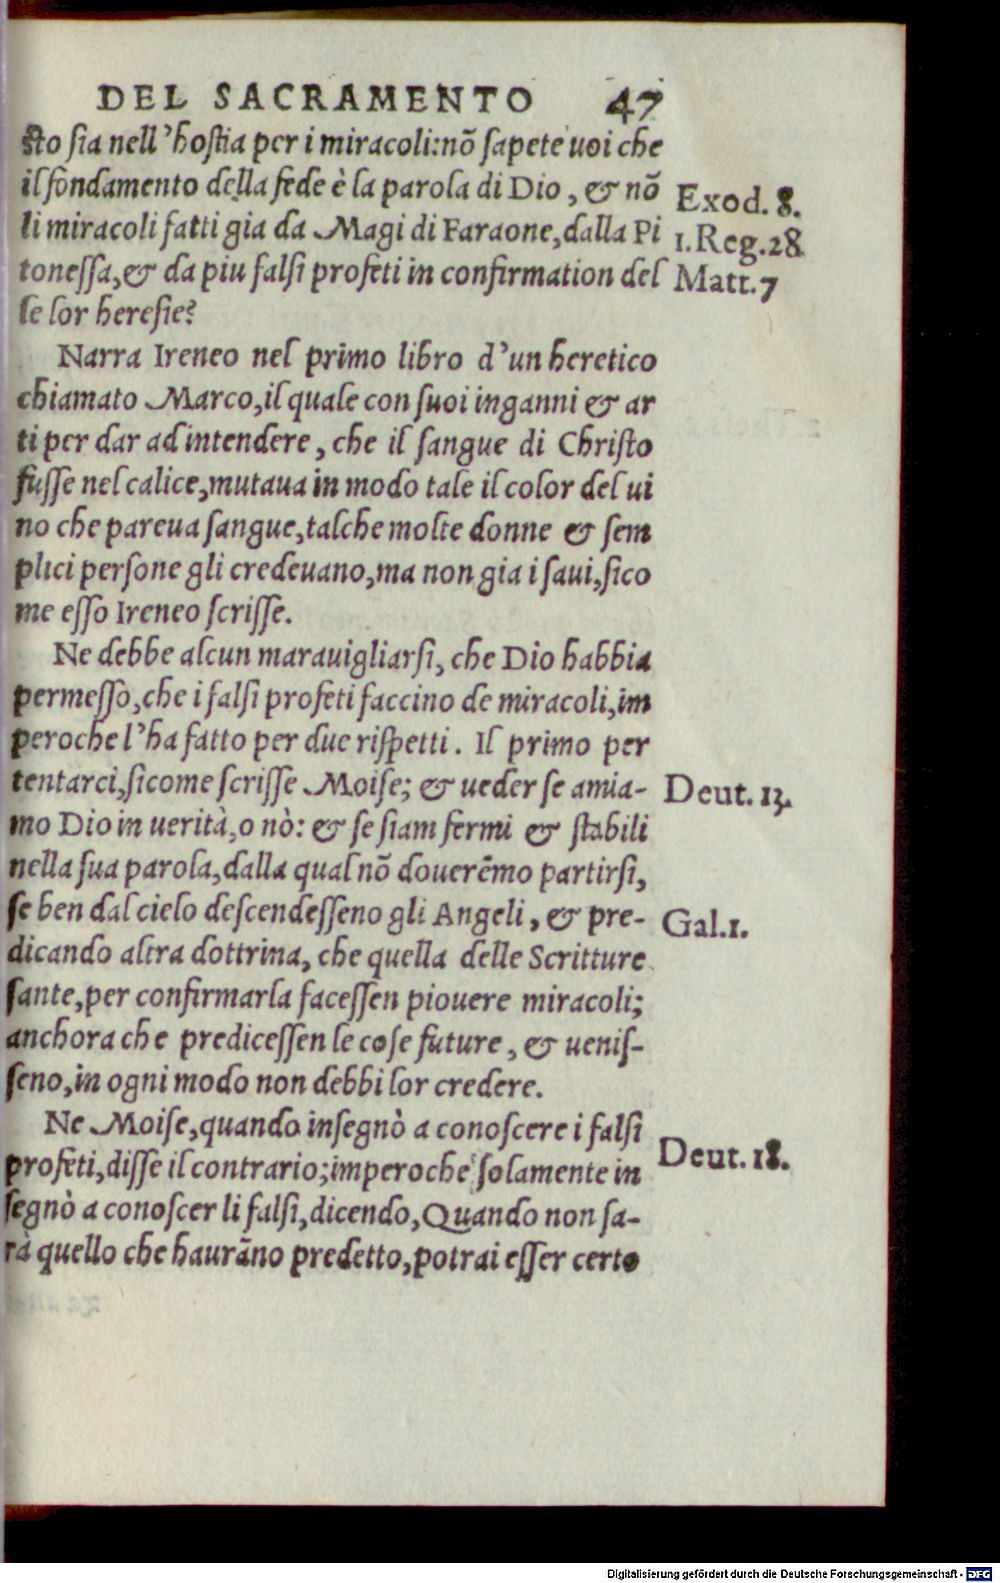 DEL SACRAMENTO 47
ſto ſia nell'hoſtia per i miracoli: nõ ſapete uoi che
il fondamento della fede è la parola di Dio, & nõ
li miracoli fatti gia da Magi di Faraone, dalla Pi
toneſſa, & da piu falſi profeti in confirmation del
le lor hereſie?
Exod. 8.
1. Reg. 28
Matt. 7
Narra Ireneo nel primo libro d'un heretico
chiamato Marco, il quale con ſuoi inganni & ar
ti per dar ad intendere, che il ſangue di Chriſto
fuſſe nel calice, mutaua in modo tale il color del ui
no che pareua ſangue, talche molte donne & ſem
plici perſone gli credeuano, ma non gia i ſaui, ſico
me eſſo Ireneo ſcriſſe.
Ne debbe alcun marauigliarſi, che Dio habbia
permeſſo, che i falſi profeti faccino de miracoli, im
peroche l'ha fatto per due riſpetti. Il primo per
tentarci, ſicome ſcriſſe Moiſe; & ueder ſe amia-
mo Dio in uerità, o nò: & ſe ſiam fermi & ſtabili
nella ſua parola, dalla qual nõ douerẽmo partirſi,
ſe ben dal cielo deſcendeſſeno gli Angeli, & pre-
dicando altra dottrina, che quella delle Scritture
ſante, per confirmarla faceſſen piouere miracoli;
anchora che prediceſſen le coſe future, & ueniſ-
ſeno, in ogni modo non debbi lor credere.
Deut. 13.
Gal. 1.
Ne Moiſe, quando inſegnò a conoſcere i falſi
profeti, diſſe il contrario; imperoche ſolamente in
ſegnò a conoſcer li falſi, dicendo, Quando non ſa-
rà quello che haurãno predetto, potrai eſſer certo
Deut. 18.
Digitalisierung gefördert durch die Deutsche Forschungsgemeinschaft - DFG